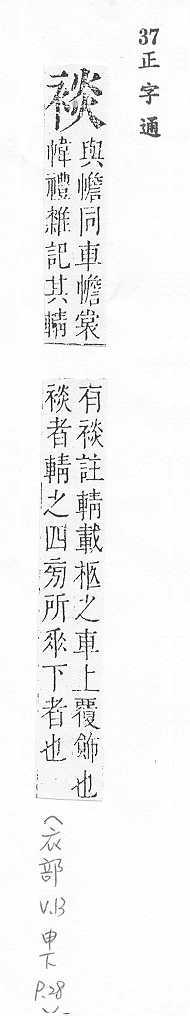 37正字通
裧
與幨同車幨裳
幃禮雜記其輤
有裧註輤載柩之車上覆飾也
裧者輤之四旁所垂下者也
(衣部 V.13 申下 P.28